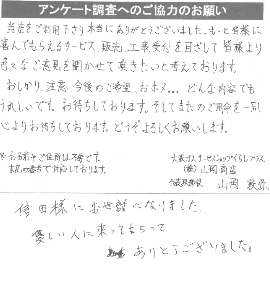 アンケート調査へのご協力のお願い
当店をご利用下さり本当にありがとうございました。もっと皆様に
喜んでもらえるサービス、販売、工事業を目ざして皆様より
色々なご意見を聞かせて頂きたいと考えております。
おしかり、注意、今後のご希望、おホメ… どんな内容でも
うれしいです。お待ちしております。そしてまたのご用命を一同
心よりお待ちしております。どうぞよろしくお願いします。
※お名前やご住所は不要です。
山岡
様に お世話になりました。
優しい人に来てもらって
ありとうございました。